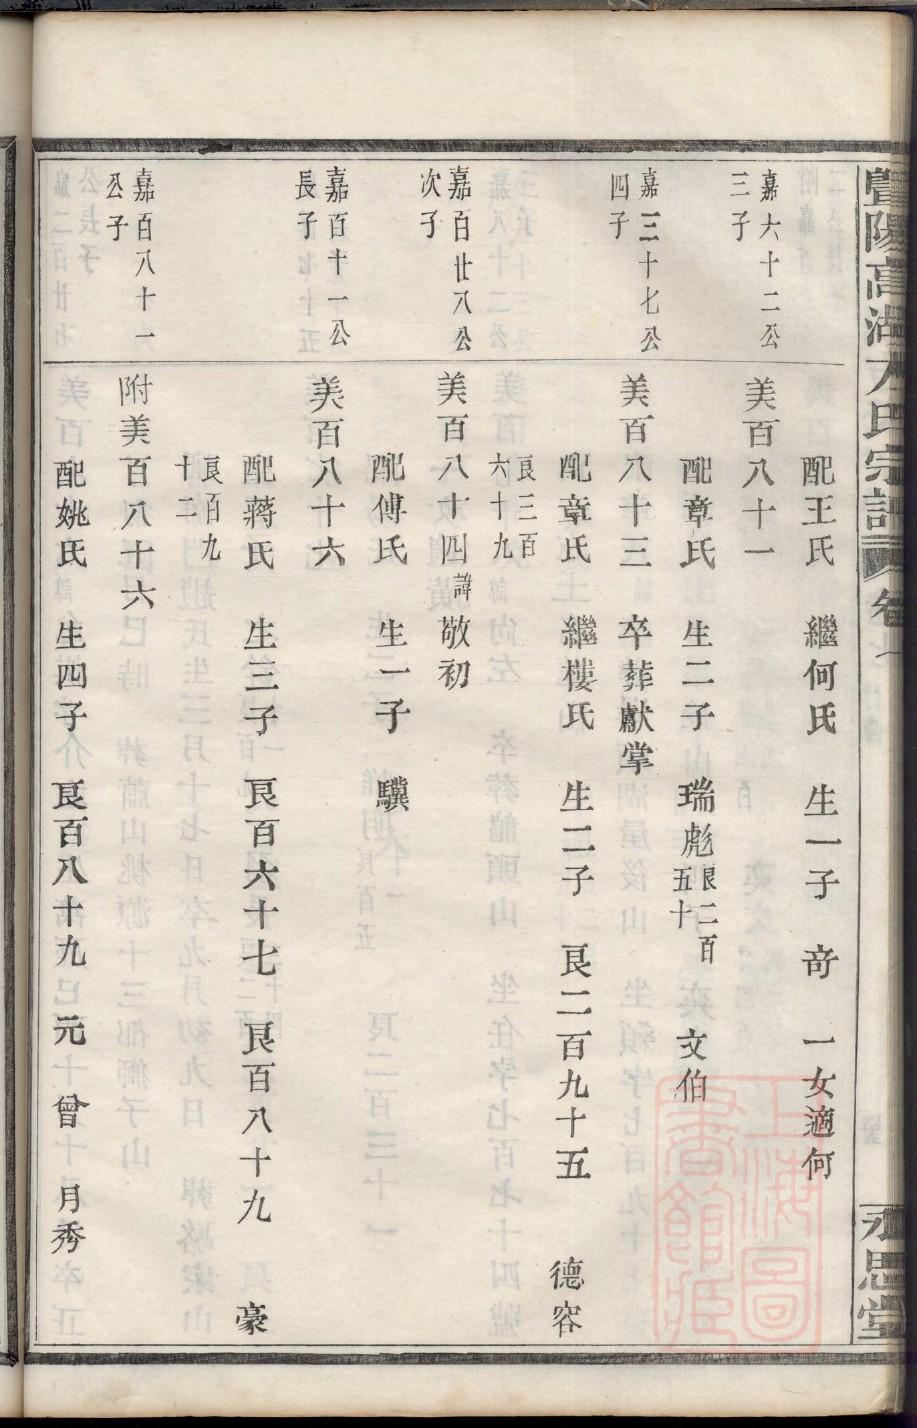 暨陽高湖方氏宗譜 卷 永思堂
配王氏 繼何氏 生一子 奇 一女適何
嘉六十二公三子
美百八十一
配章氏 生二子 瑞彪 良二百五十 文伯
嘉三十七公四子
美百八十三 卒葬獻掌
配章氏 繼樓氏 生二子 艮二百九十五 德容 良三百六十九
嘉百廿八公次子
美百八十四 諱敬初
配傅氏 生一子 驥
嘉百十一公長子
美百八十六
配蔣氏 生三子 艮百六十七 艮百八十九 豪 良百九十二
嘉百八十一公子
附美百八十六
配姚氏 生四子 艮百八十九 元 曾 月秀